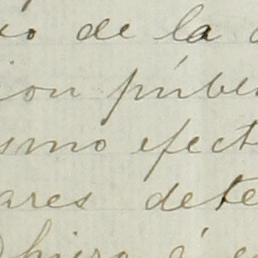 io de la
ion públi
smo efect
ares dete